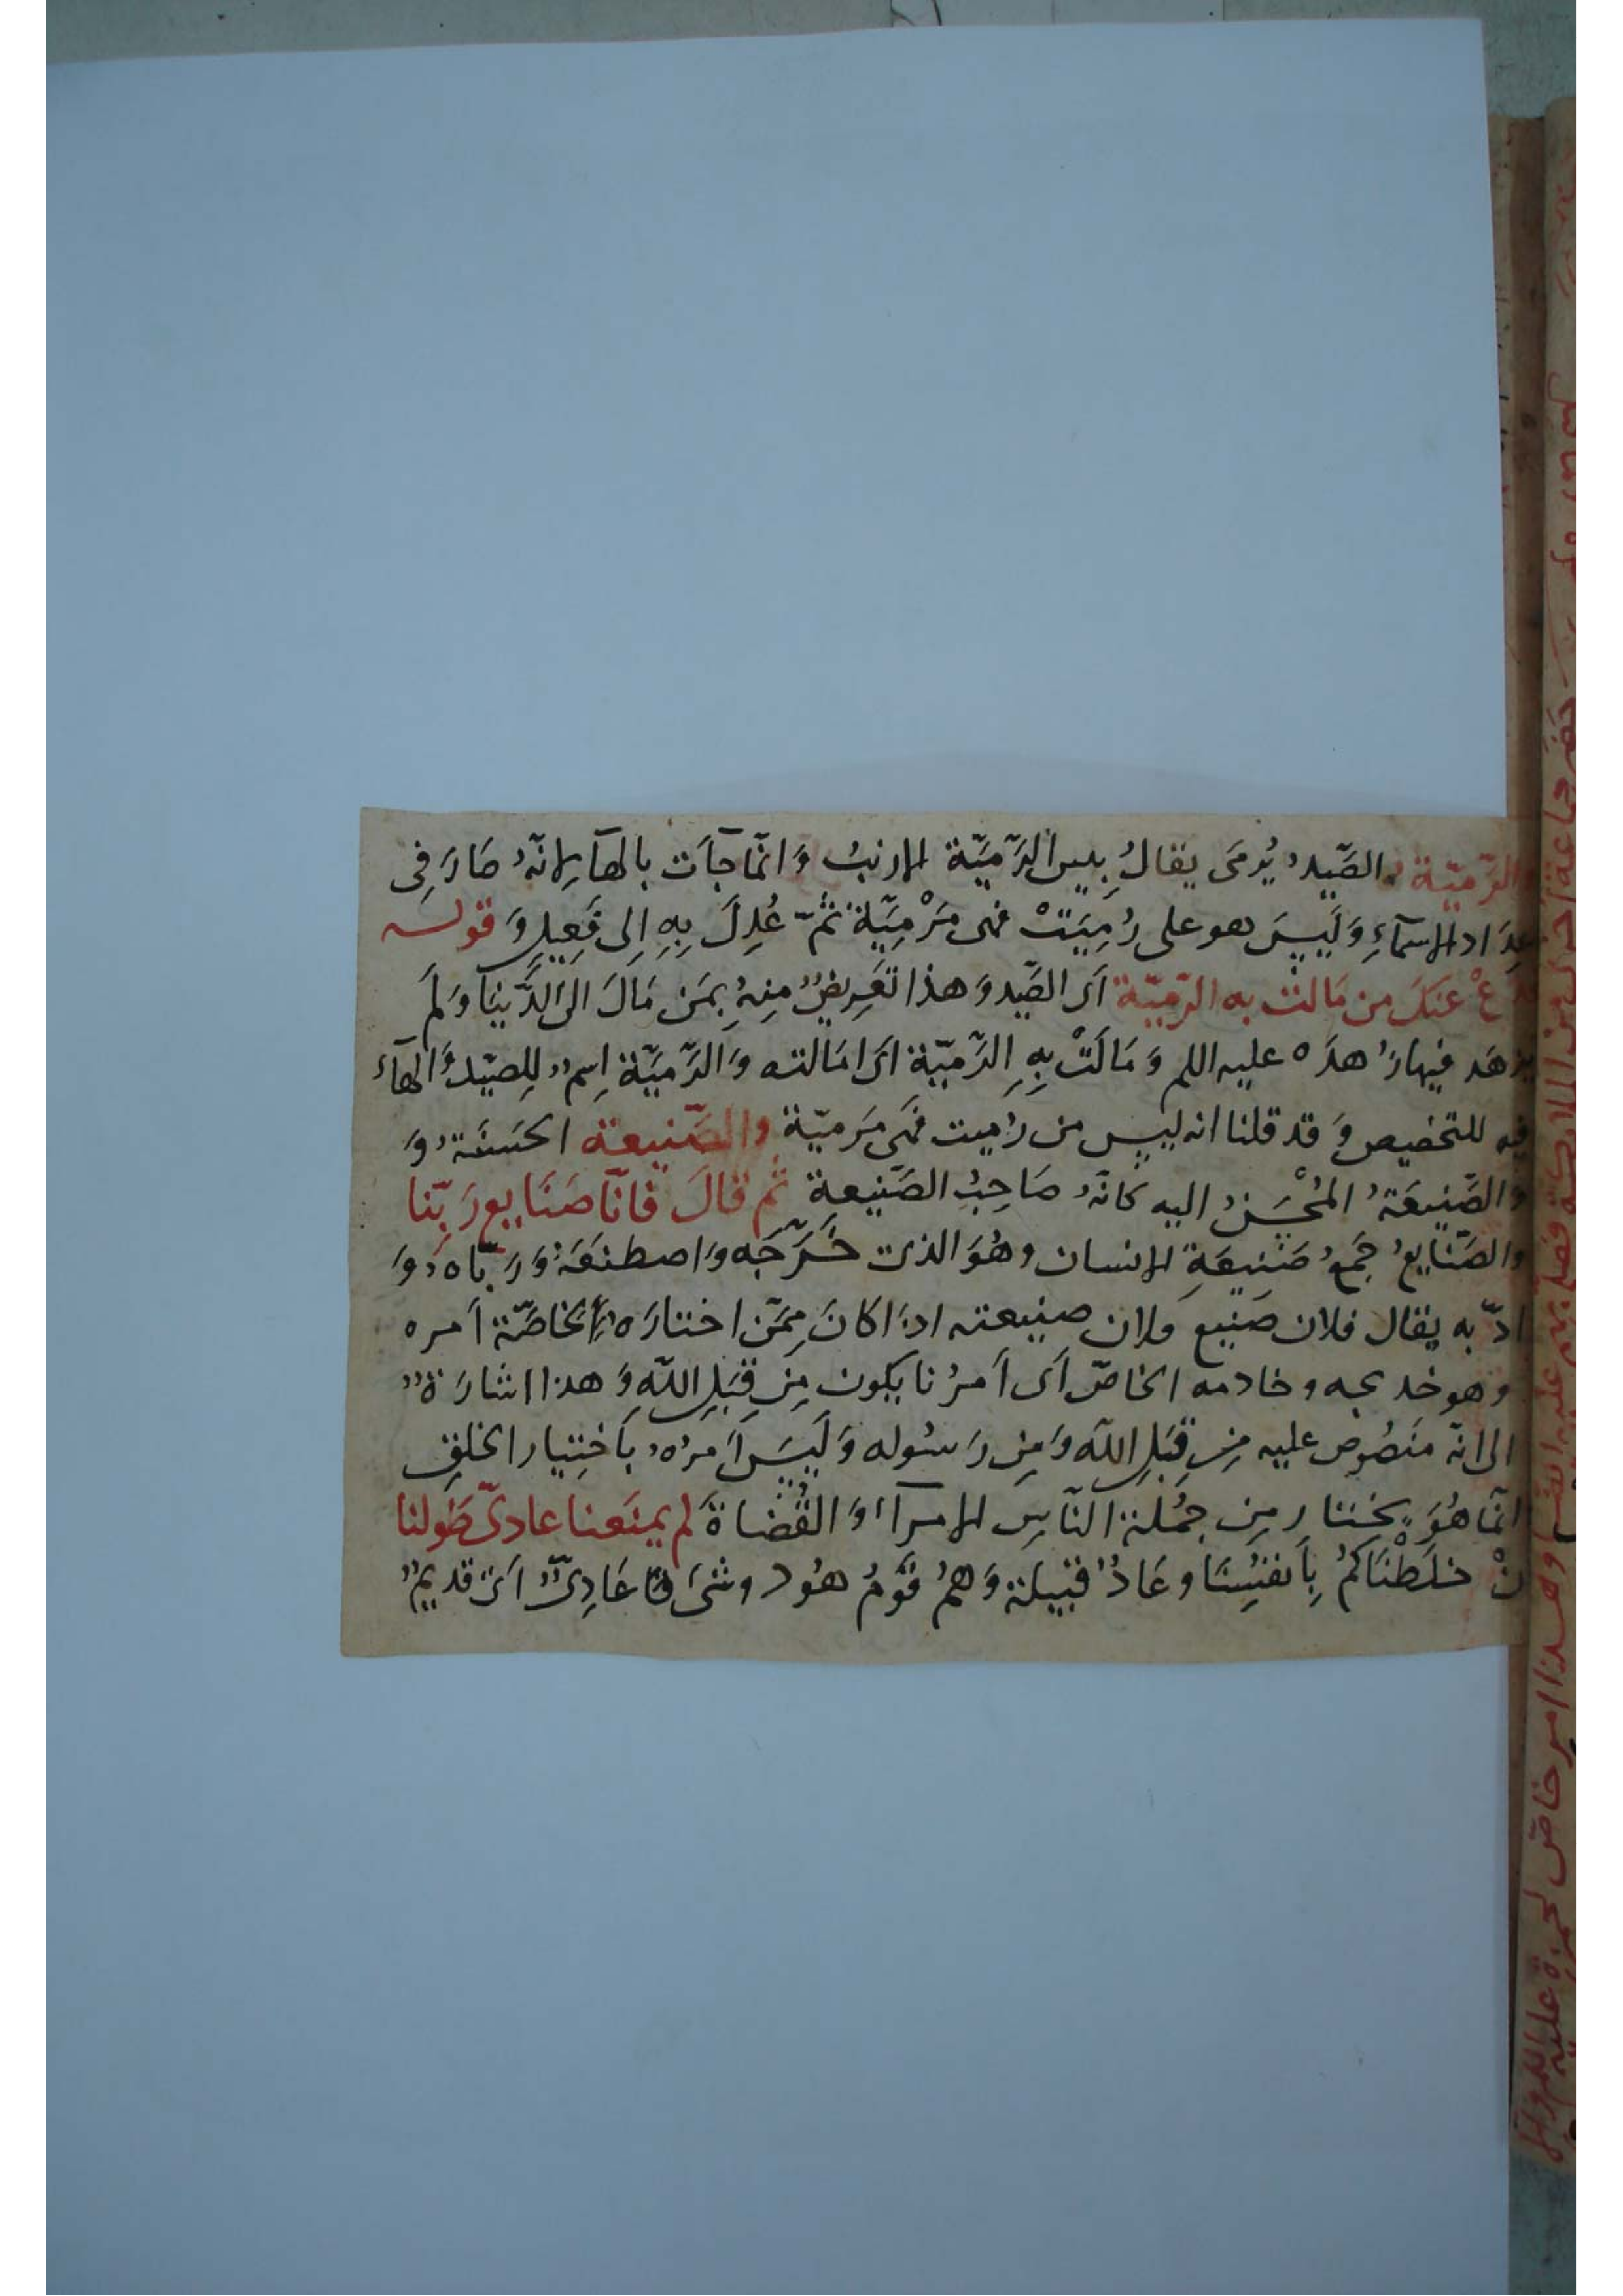 والرّميّة الصَّيدُ يُرمَى يقالُ بيس الرَّمِيَّة الارنبُ وَانّما جآءَت بالهآءِ لانّهُ صَارَ فِى
عِدَاد الاسمآءِ وَلَيسَ هو على رُمِيَتْ فهى مَرْمِيَّة ثمّ عُدِلَ بِهِ اِلى فَعِيلٍ وَقوله
دَعْ عَنكَ من مَالَتْ به الرّمِيّة اَى الصَّيد وَهذا تَعرِيضٌ مِنهُ بمَن مَالَ الىَ الدُّنيَا وَلم
يزهَد فيها زُهدَه عليه السلم وَمَالَتْ بِهِ الرَّمِيّة اَى امَالته وَالرَّمِيَّة اِسمٌ لِلصيّد وَالهآء
فيه للتخصيص وَقد قلنا انه ليس من رُميت فهَى مَرميّة والصَّنيعة الحَسَنَةُ وَ
والصَّنيعَةُ المُحْسَنُ اليه كانّهُ صَاحِبُ الصَّنِيعةِ ثم قالَ فَانّا صَنَايع رَبِّنا
والصَّنايعُ جَمعُ صَنيعَةِ الانسان وهُوَ الذى خَرَّجَه وَاصطنَعَهُ وَرَبّاه وَ
ادّبه يقال فلان صَنيع فلان وصنيعته اذَا كانَ مِمَّن اختارَه لِخاصّة اَمره
وهو خد يجه وخادمه الخاصّ اَى اَمرُنا يكون مِن قِبَلِ اللّهِ وَهذا اشارَةٌ
الى انّه مَنصُوص عليه مِن قِبَلِ اللّه وَمِن رَسُوله وَلَيسَ اَمرُهُ بِاختِيار الخلقِ
انّما هُوَ يختار مِن جُملة النّاسِ الامرآءَ وَالقُضَاةَ لم يمنَعنا عادىّ طَولنا
اَنْ خلَطْنَاكمُ بِاَنفُسِنَا وعَادٌ قبيلة وَهمُ قَومُ هُود وشىَ عَادِىٌّ اَى قديمٌ